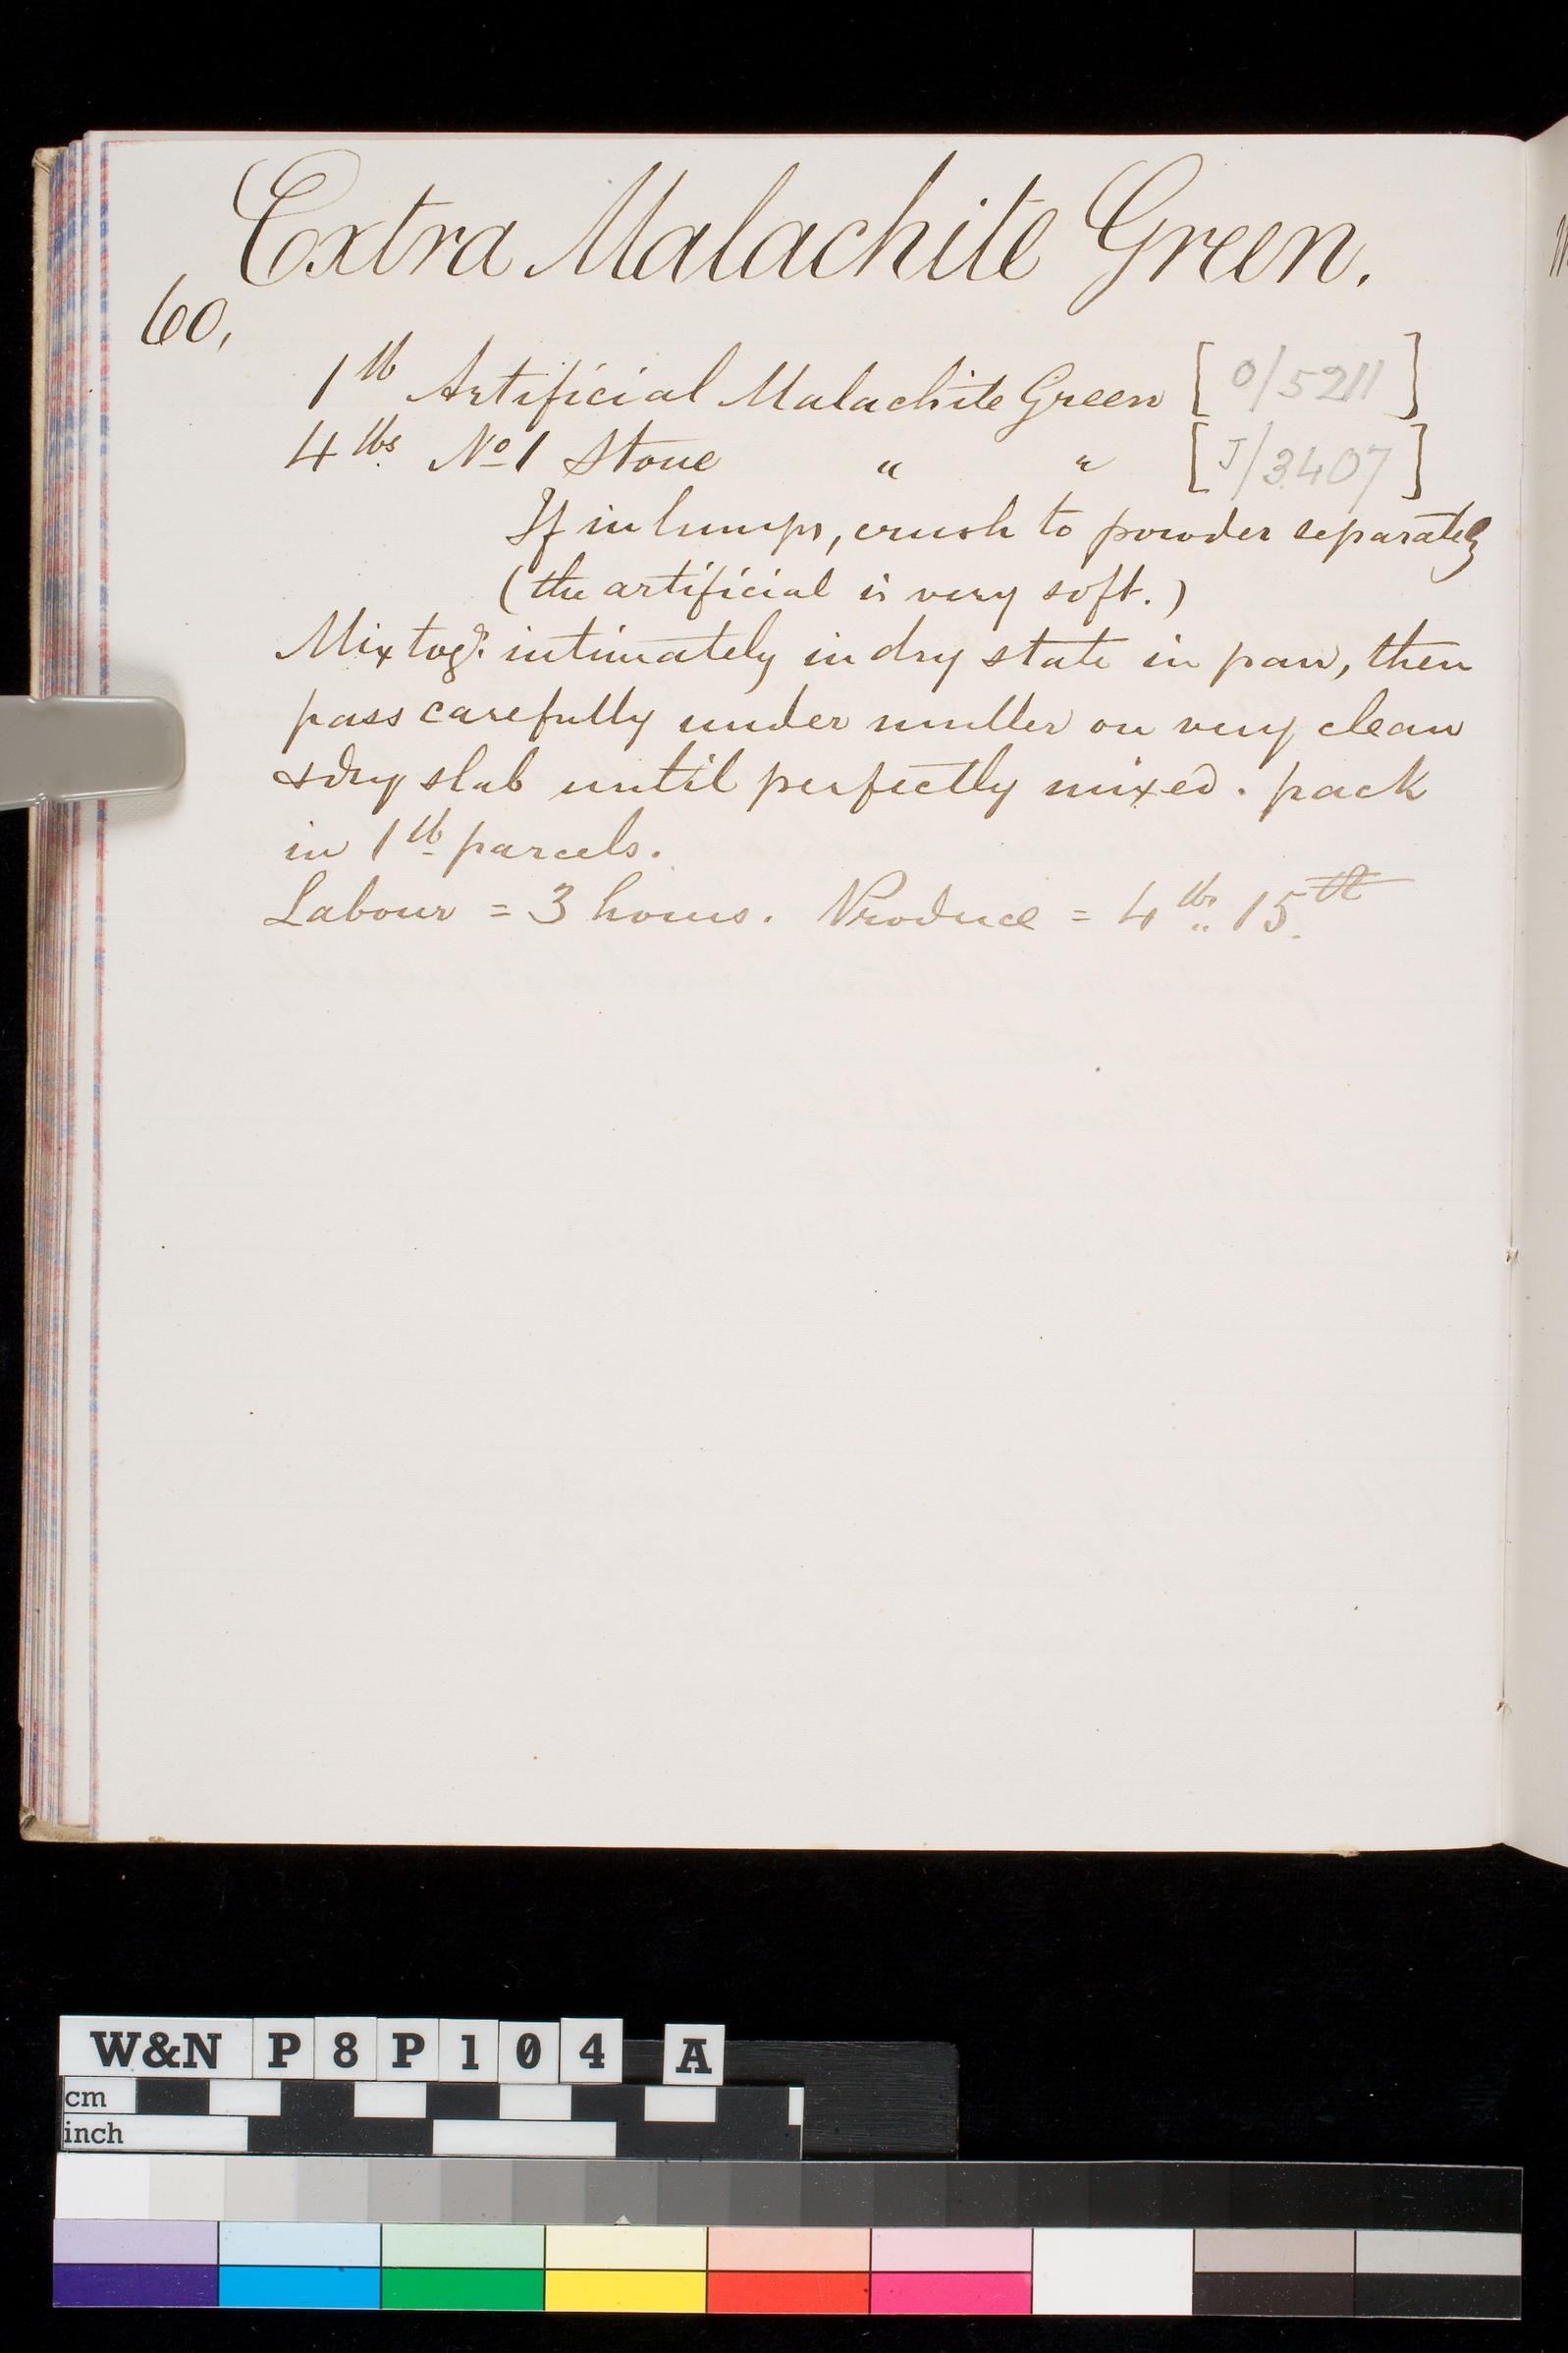 Extra Malachite Green.
60,
1 lb Artificial Malachite Green [ 0/5211 ]
4 lbs No 1 Stone " " [ J/3407 ]
If in lumps, crush to powder separately
(the artificial is very soft.)
Mix togr. intimately in dry state in pan, then
pass carefully under muller on very clean
& dry slab until perfectly mixed. pack
in 1 lb parcels.
Labour = 3 hours. Produce = 4 lbs 15
W&N P8P104 A
cm
inch